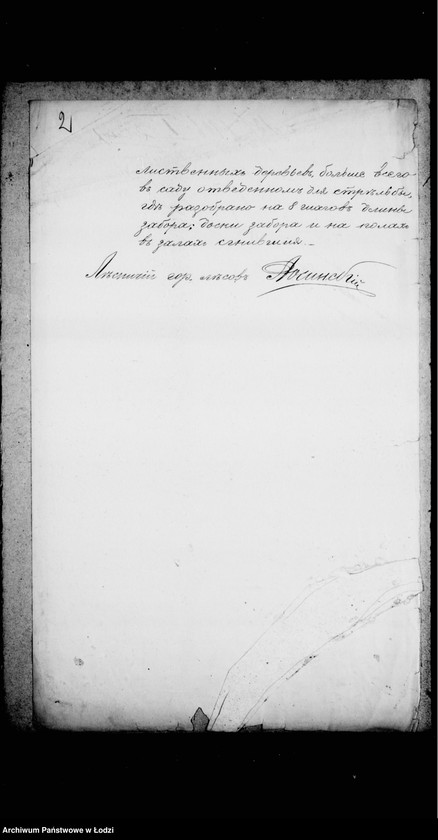 2
лиственныхъ деревьевъ, больше всего
въ саду отведенномъ для стрѣльбы,
гдѣ разобрано на 8 шаговъ длины
забора; доски забора и на полахъ
въ залахъ сгнившия. _
Лѣсничій гор. лѣсовъ
Archiwum Państwowe w Łodzi